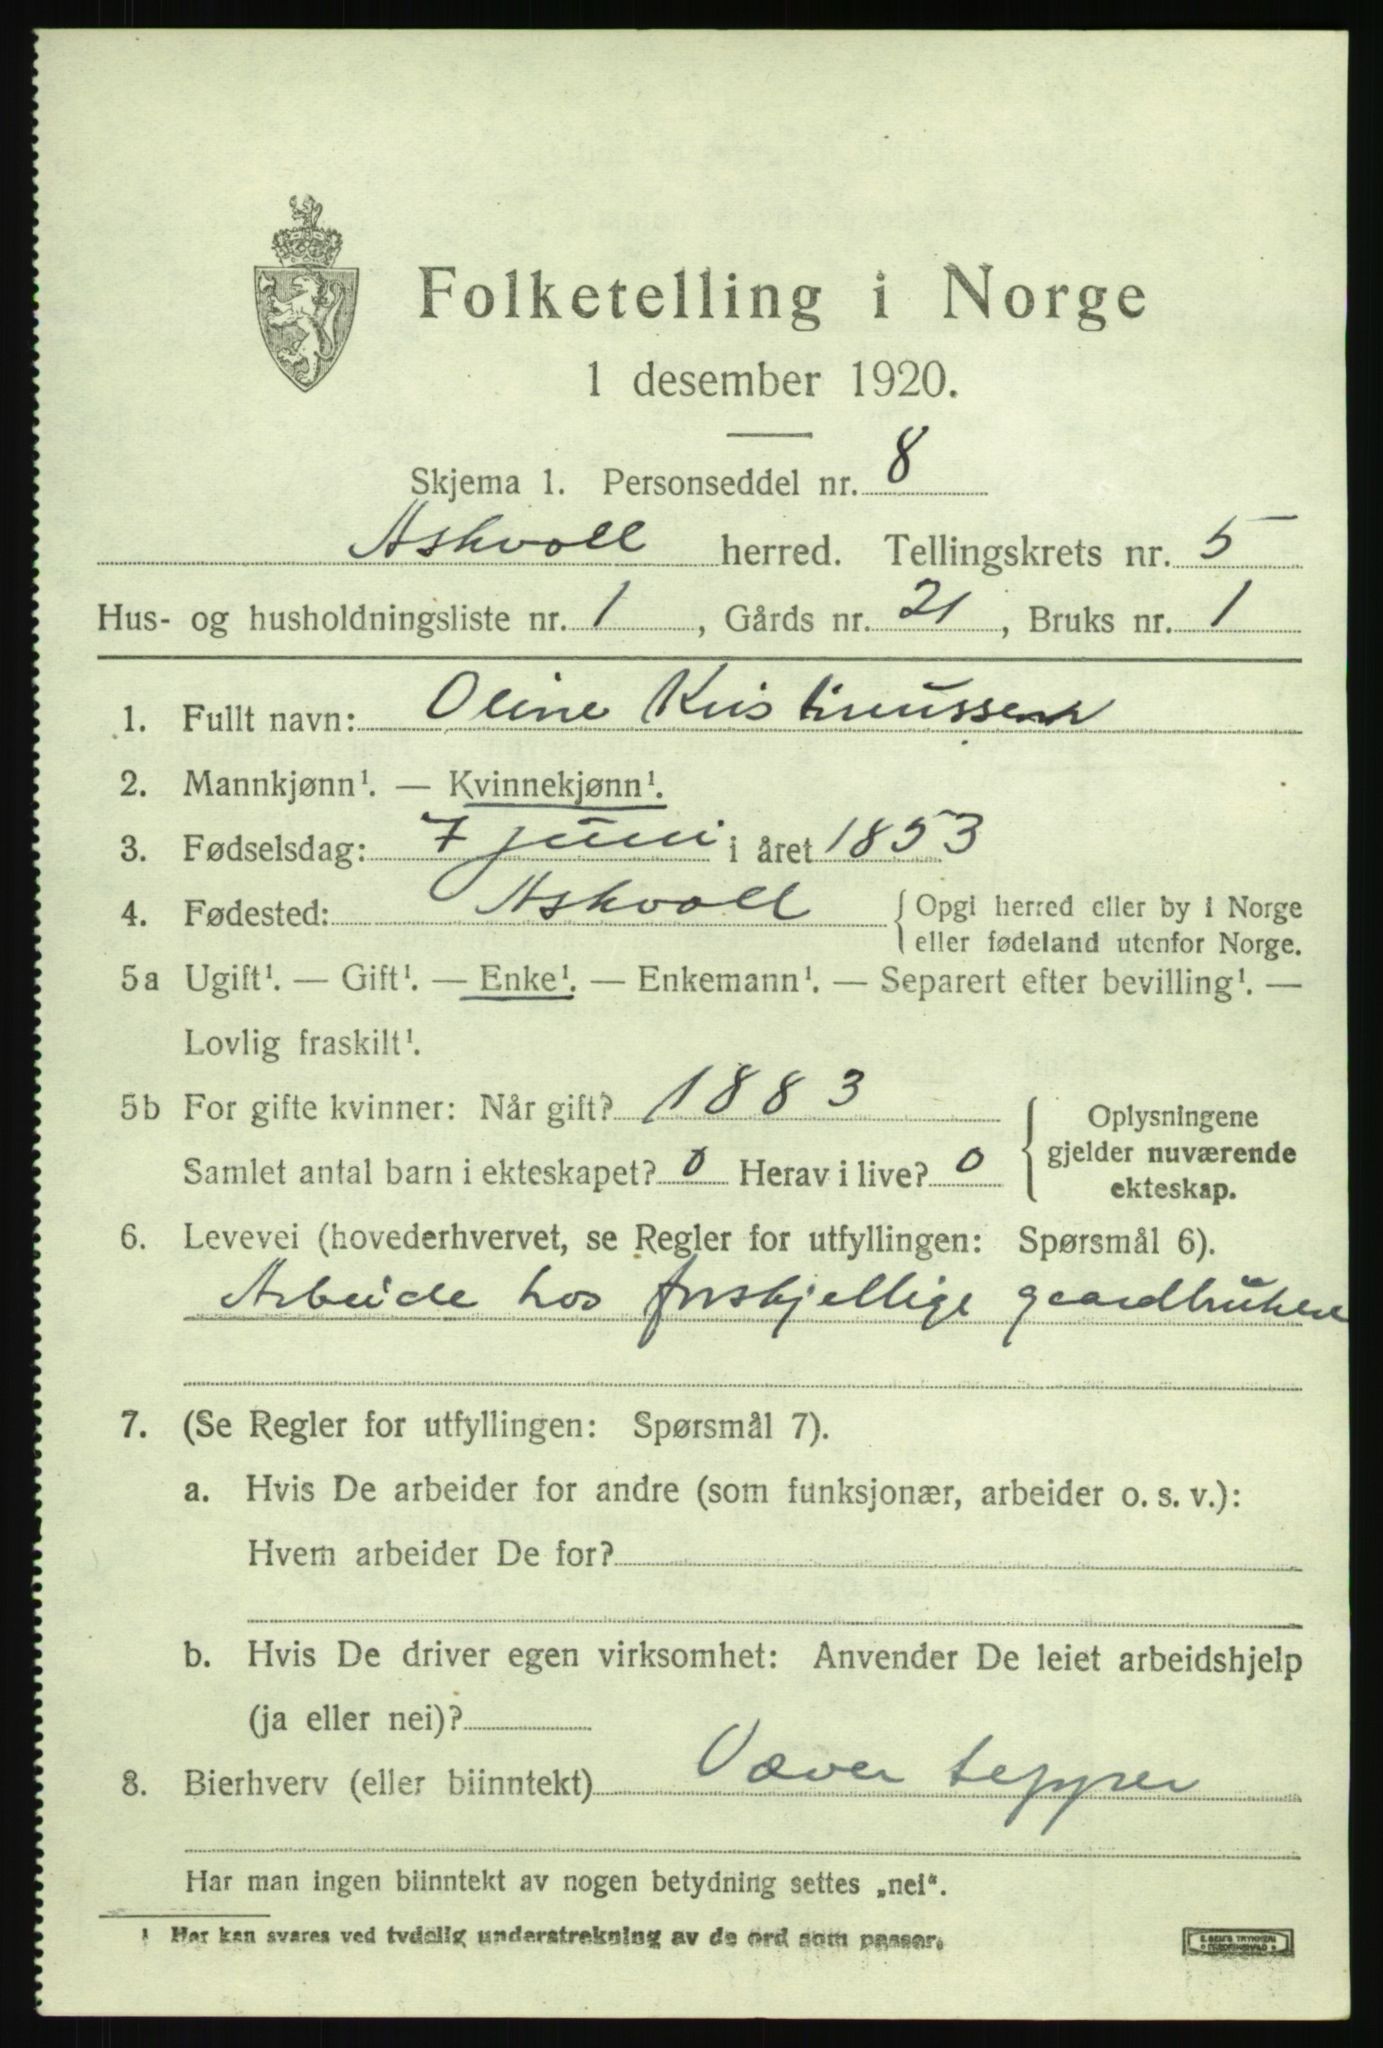 Folketelling i Norge
1 desember 1920.
Skjema 1. Personseddel nr. 8
Askvoll herred. Tellingskrets nr. 5
Hus- og husholdningsliste nr. 1, Gårds nr. 21, Bruks nr. 1
1. Fullt navn: Oline Kristinussen
2. Mannkjønn¹. — Kvinnekjønn¹.
3. Fødselsdag: 7 juni i året 1853
4. Fødested: Askvoll { Opgi herred eller by i Norge
eller fødeland utenfor Norge.
5a Ugift¹. — Gift¹. — Enke¹. — Enkemann¹. — Separert efter bevilling¹. —
Lovlig fraskilt¹.
5b For gifte kvinner: Når gift? 1883
Samlet antal barn i ekteskapet? 0 Herav i live? 0
{ Oplysningene
gjelder nuværende
ekteskap.
6. Levevei (hovederhvervet, se Regler for utfyllingen: Spørsmål 6).
Arbeide hos forskjellige gaardbrukere
7. (Se Regler for utfyllingen: Spørsmål 7).
a. Hvis De arbeider for andre (som funksjonær, arbeider o. s. v.):
Hvem arbeider De for?
b. Hvis De driver egen virksomhet: Anvender De leiet arbeidshjelp
(ja eller nei)?
8. Bierhverv (eller biinntekt) Væver tepper
Har man ingen biinntekt av nogen betydning settes „nei“.
¹ Her kan svares ved tydelig understrekning av de ord som passer.